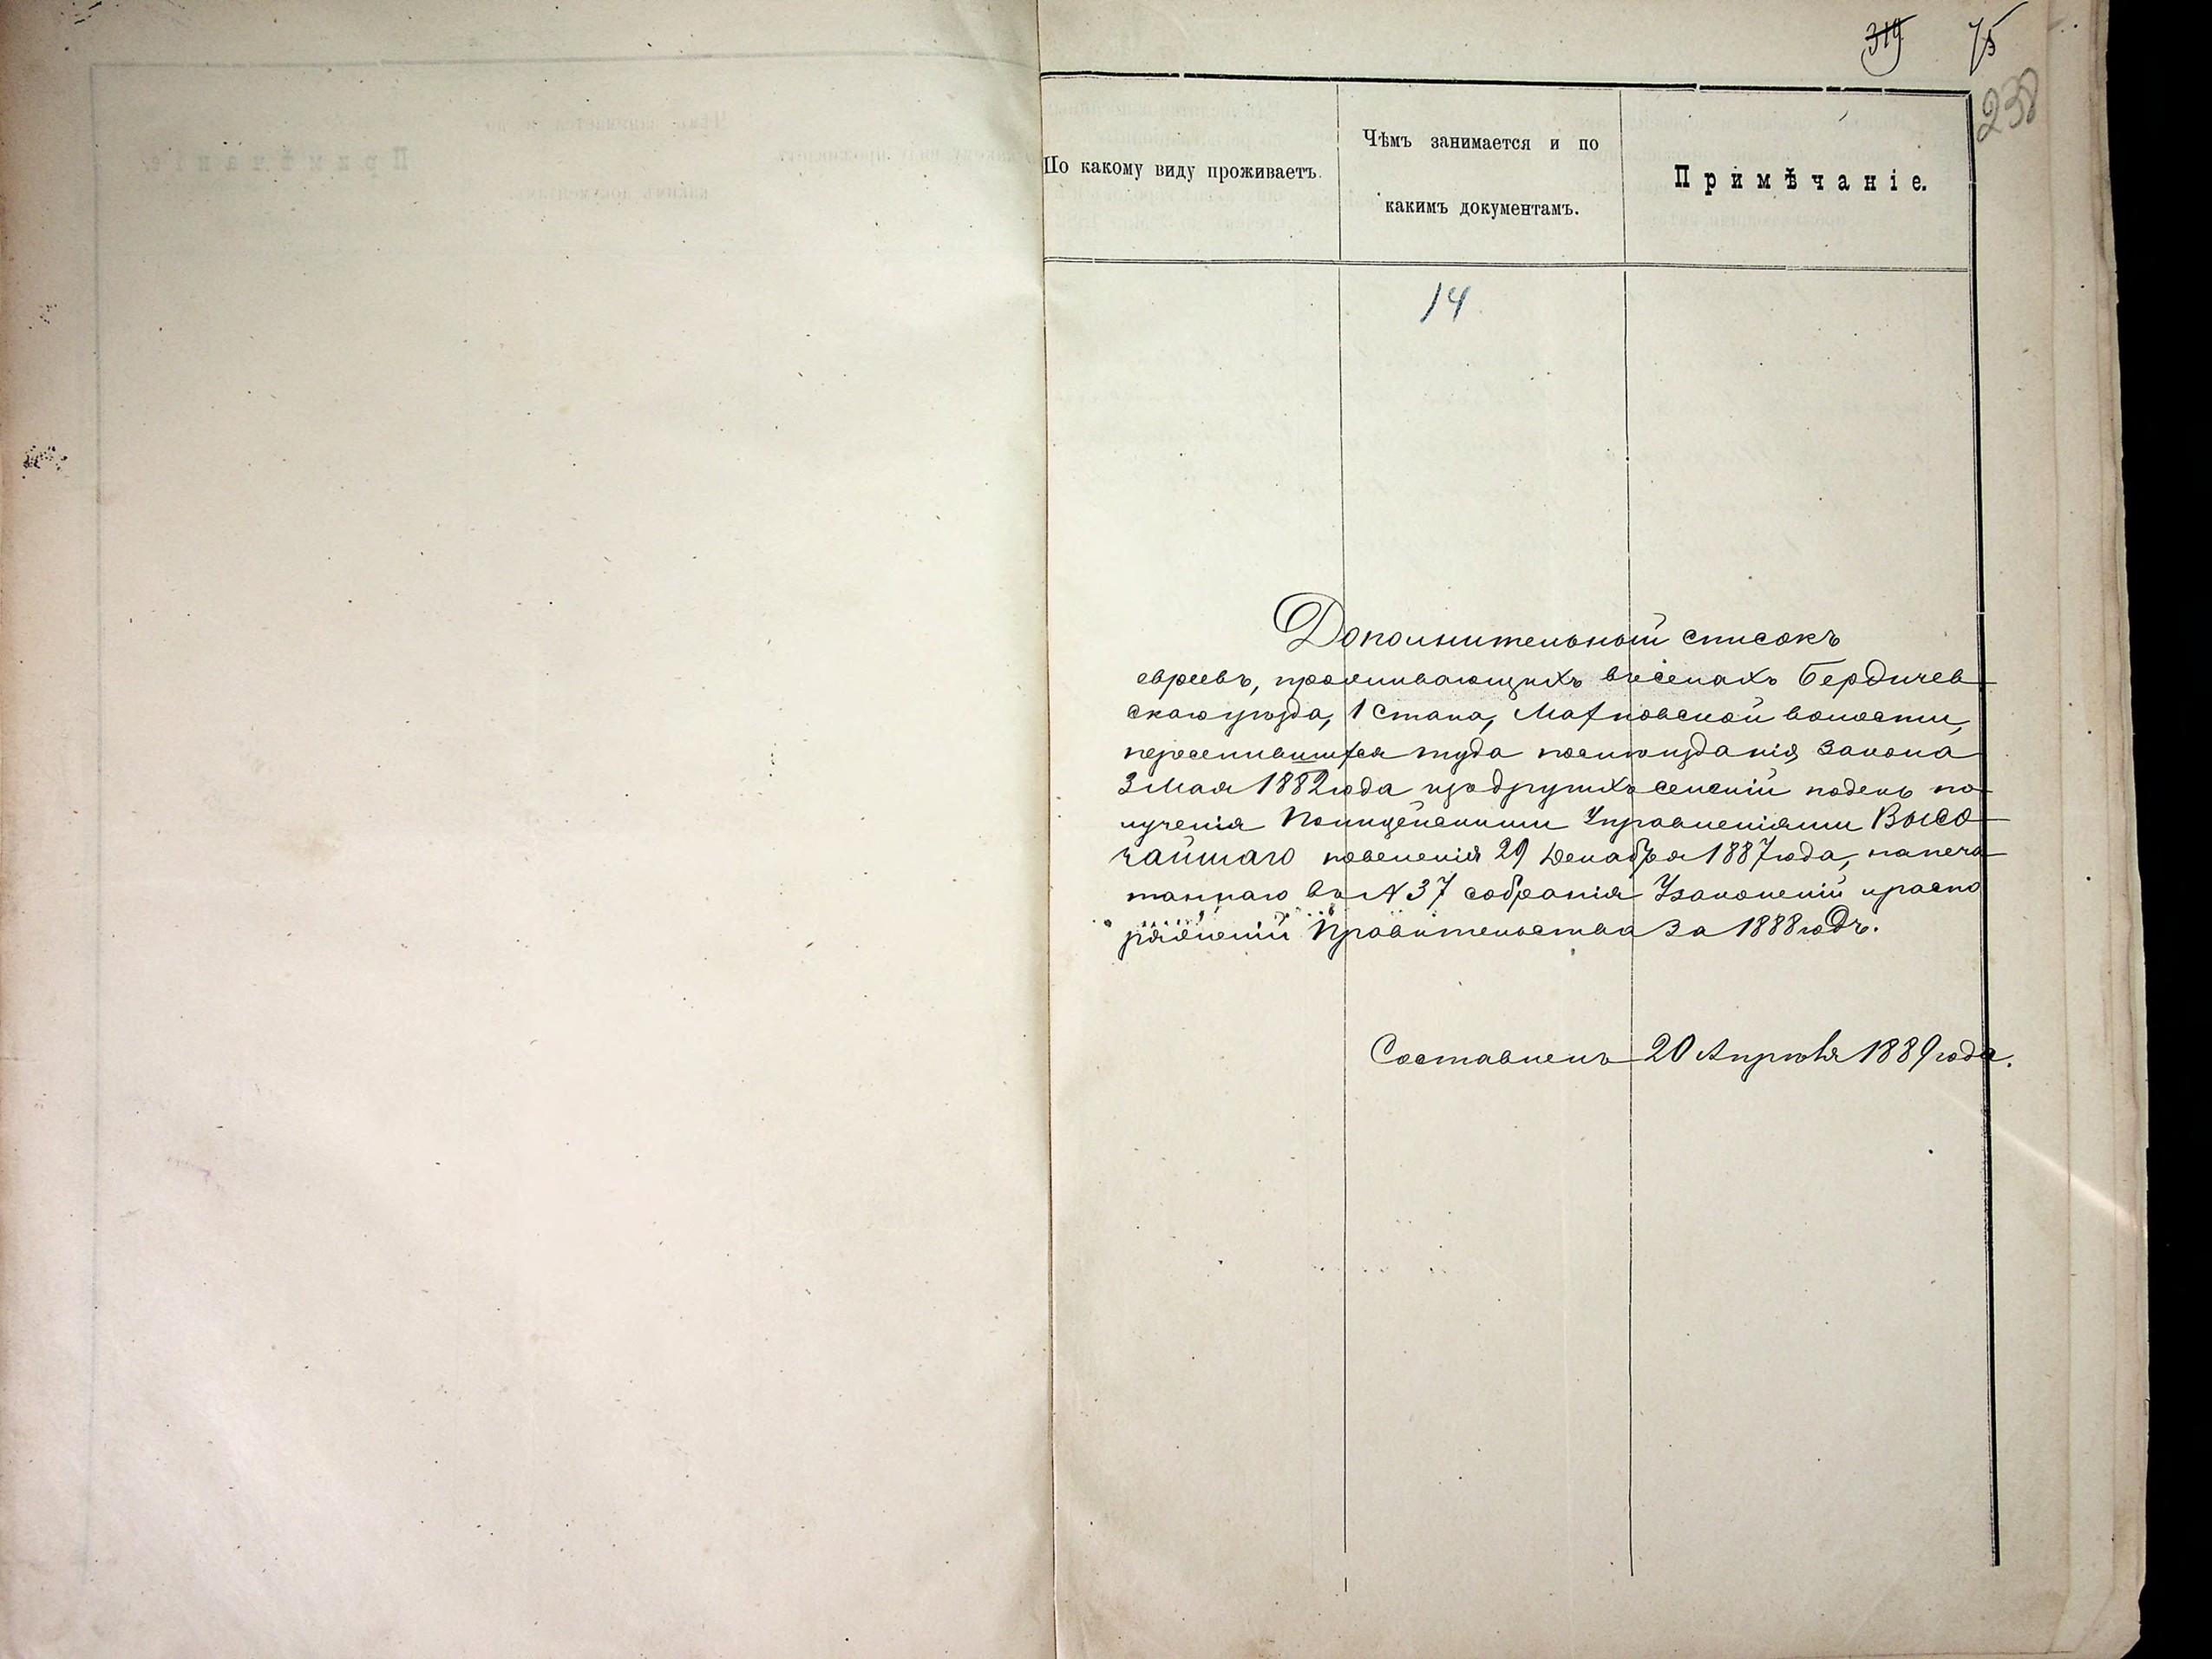 319 75
238
По какому виду проживаетъ.
Чѣмъ занимается и по
какимъ документамъ.
Примѣчаніе.
14
Дополнительный списокъ
евреевъ, проживающихъ въ селахъ Бердичев-
скаго уѣзда, 1 стана, Махновской волости,
переселившихся туда послѣ изданія закона
3 Мая 1882 года изъ другихъ селеній по день по-
лученія Полицейскими Управленіями Высо-
чайшаго повеленія 29 Декабря 1887 года, напеча-
таннаго въ № 37 собранія Узаконеній и распо
ряженій Правительства за 1888 годъ.
Составленъ 20 Апрѣля 1889 года.